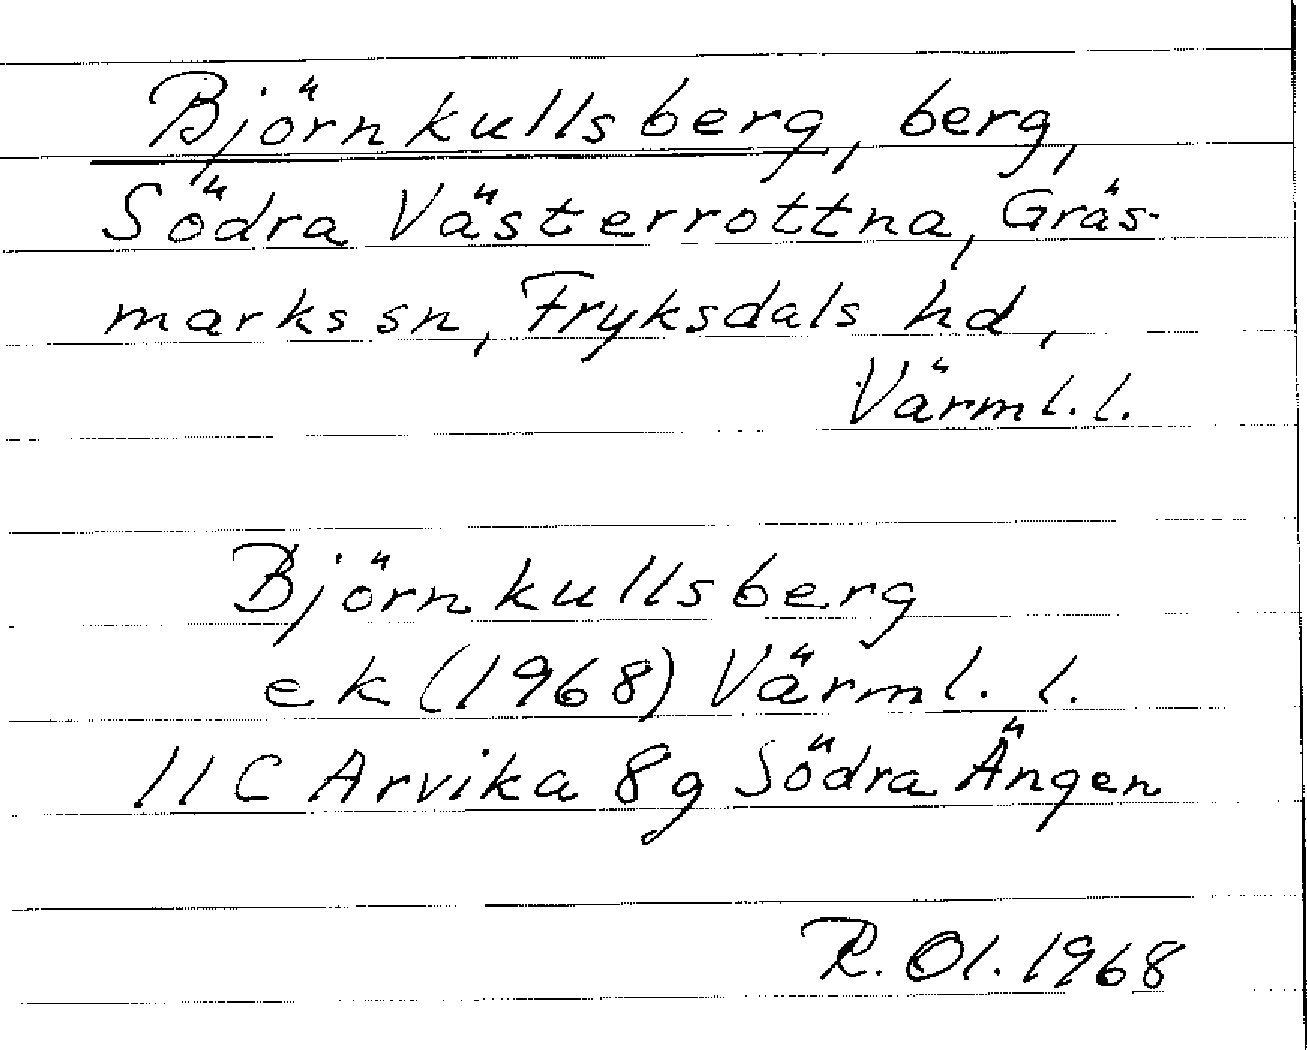 Björnkullsberg, berg,
Södra Västerrottna, Gräs-
marks sn, Fryksdals hd,
Värml. l.
Björnkullsberg
ek (1968) Värml. l.
11C Arvika 8g Södra Ängen
R. Ol. 1968